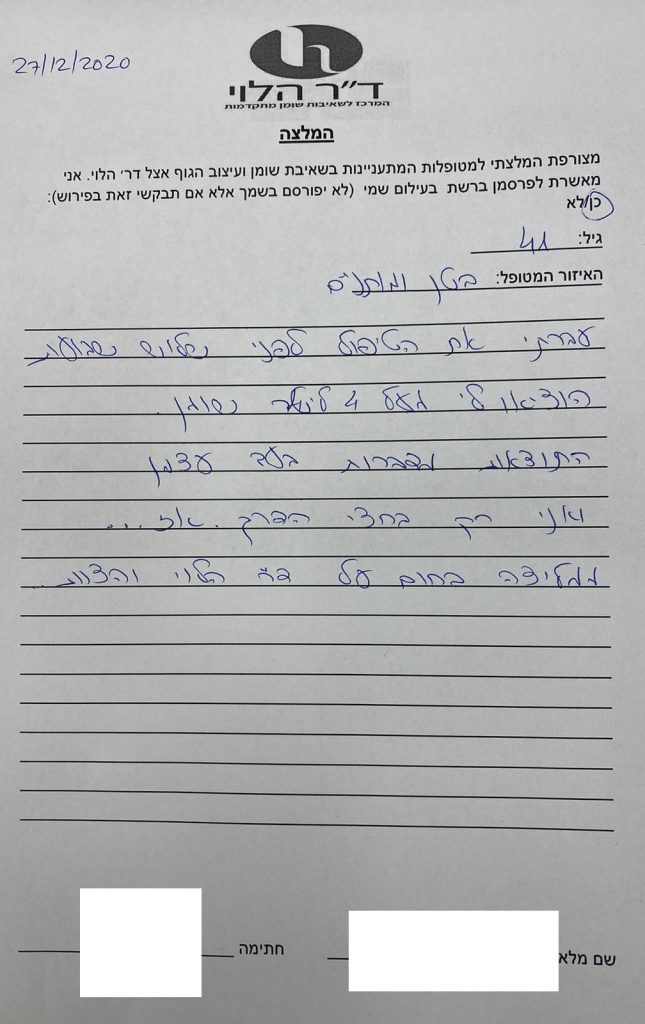 27/12/2020
ד"ר הלוי
המרכז לשאיבות שומן מתקדמות
המלצה
מצורפת המלצתי למטופלות המתעניינות בשאיבת שומן ועיצוב הגוף אצל דר׳ הלוי. אני
מאשרת לפרסמן ברשת בעילום שמי (לא יפורסם בשמך אלא אם תבקשי זאת בפירוש):
כן/לא
גיל: 41
האיזור המטופל: בטן ומותניים
עברתי את הטיפול לפני שלוש שבועות
הוציאו לי מעל 4 ליטר שומן.
התוצאות מדברות בעד עצמן
ואני רק בחצי הדרך. אז...
ממליצה בחום על דר הלוי והצוות.
שם מלא
חתימה